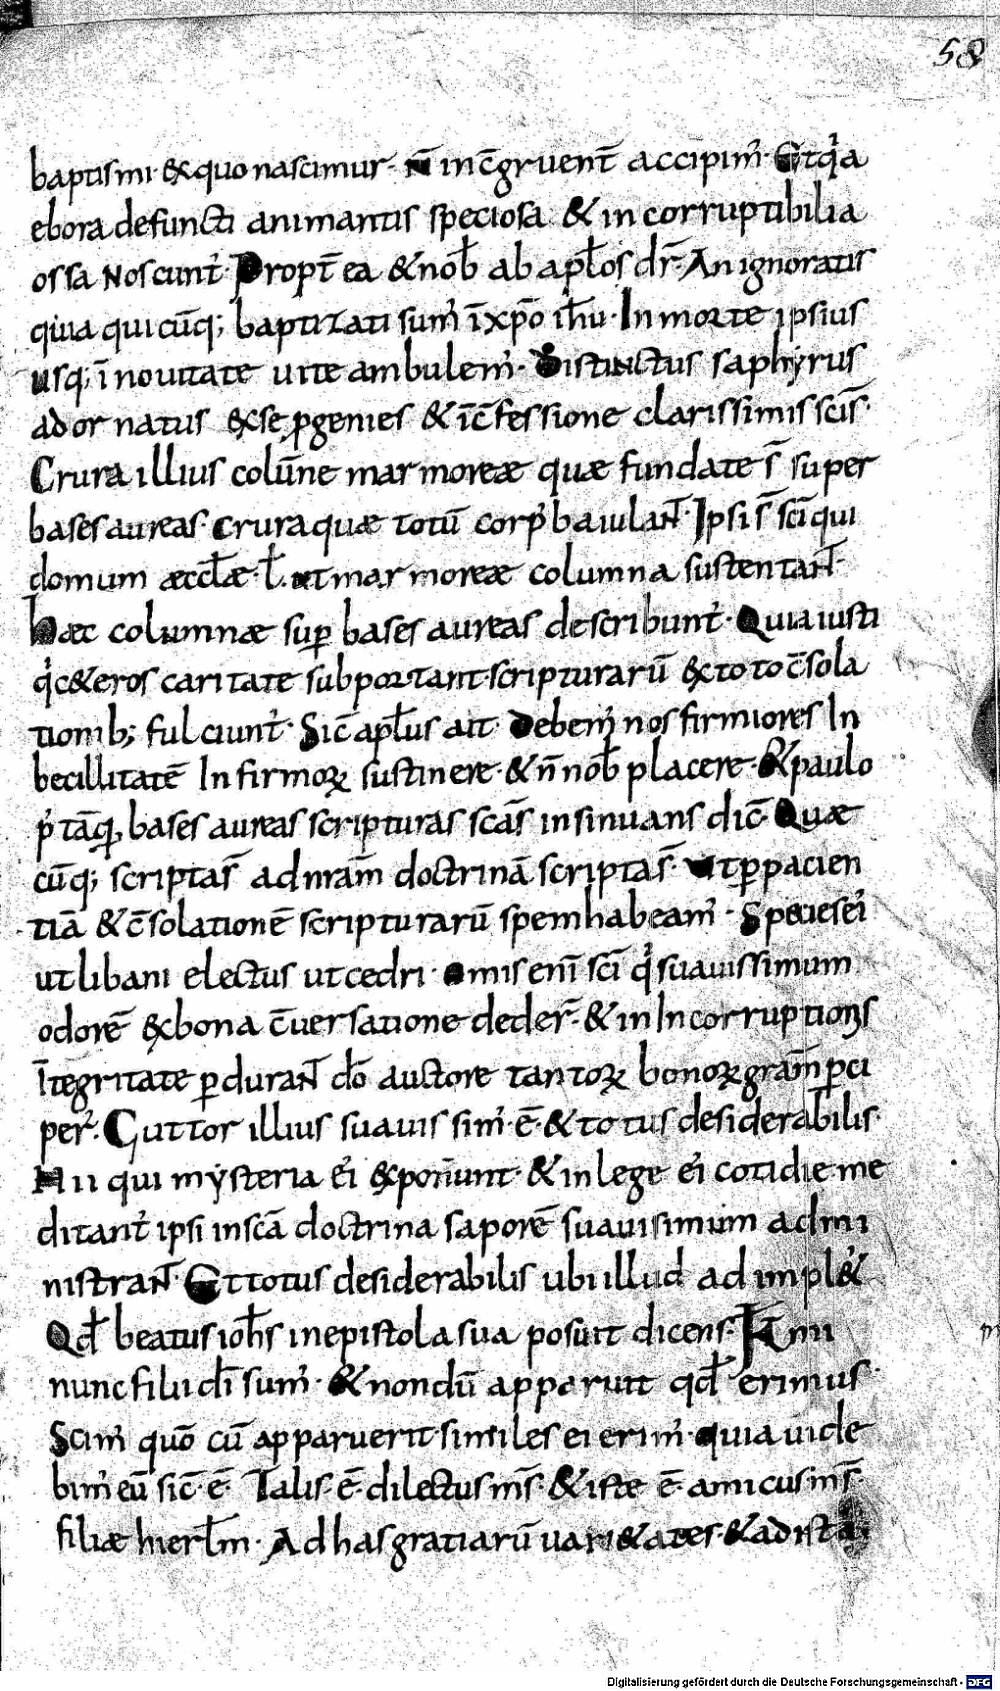 58
baptismi· &quo nascimur· N̄ incg̅ruent̄ accipim᷒· Etqͥa
ebora defuncti animantis speciosa & incorruptibilia
ossa Noscunt᷒· Propt̄ea &nob̄ ab apl̄os dr̄· An ignoratis
quia quicūq; baptizati sum᷒ īxp̄o ih̄u· In morte ipsius
usq; ī nouitate uite ambulem᷒· Distinctus saphyrus
ad ornatus exse ꝓgenies & īc̄fessione clarissimis sc̄is·
Crura illius colūne marmoreæ quæ fundate s̄ super
bases aureas· Crura quæ totū corp᷒ baiulaNt̄· Ipsi s̄ sc̄i qui
domum æccl̄æ· l̄· ut marmoreæ columna sustentaNt̄·
hæc columnæ suꝑ bases aureas describunt᷒· Quia iusti
qͥ c&eros caritate subportant· scripturarū & toto c̄sola
tionib; fulciunt᷒· Sic̄ apl̄us ait Debem᷒ nos firmiores In
becillitatē Infirmoꝝ sustinere· & n̄ nob̄ placere· & paulo
p᷒ tāq̄ bases aureas scripturas sc̄as insinuans dic̄ Quæ
cūq; scripta s̄ ad nr̄am doctrinā scripta s̄· Ut ꝑ pacien
tiā & c̄solationē scripturarū spem habeam᷒· Species ei᷒
ut libani electus ut cedri· Omis enī sc̄i qͥ suauissimum
odorē ex bona c̄uersatione deder̄· & in Incorruptionis
Itegritate ꝑduraNt̄ do̅ auctore tantoꝝ bonoꝝ gr̄am ꝑci
per᷒· Guttor illius suauissim᷒· ē· & totus desiderabilis·
Hii qui mysteria ei᷒ exponunt· & in lege ei᷒ cotidie me
ditant᷒ ipsi in sc̄a doctrina saporē suauisimum admi
nistraNt̄· Et totus desiderabilis ubi illud ad impl&᷒
Qd̄ beatus ioh̄s in epistola sua posuit dicens· Kmi
nunc filii di̅ sum᷒· & nondū apparuit qd̄ erimus
Scim᷒ quō cū apparuerit similes ei erim᷒ quia uide
bim᷒ eū sic̄· ē· Talis· ē· dilectus ms̄· & iste ē· amicus ms̄
filiæ hierl̄m· Ad has gratiarū uari&ates· & ad ista
Digitalisierung gefördert durch die Deutsche Forschungsgemeinschaft - DFG